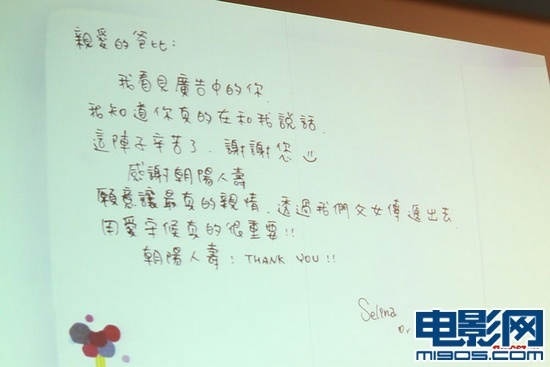 親愛的爸比:
我看見廣告中的你
我知道你真的在和我說話
這陣子辛苦了.謝謝您
感謝朝陽人壽
願意讓最真的親情.透過我們父女傳遞出去
用愛守候真的很重要!!
朝陽人壽:THANK YOU!!
Selina
电影网
m1905.com